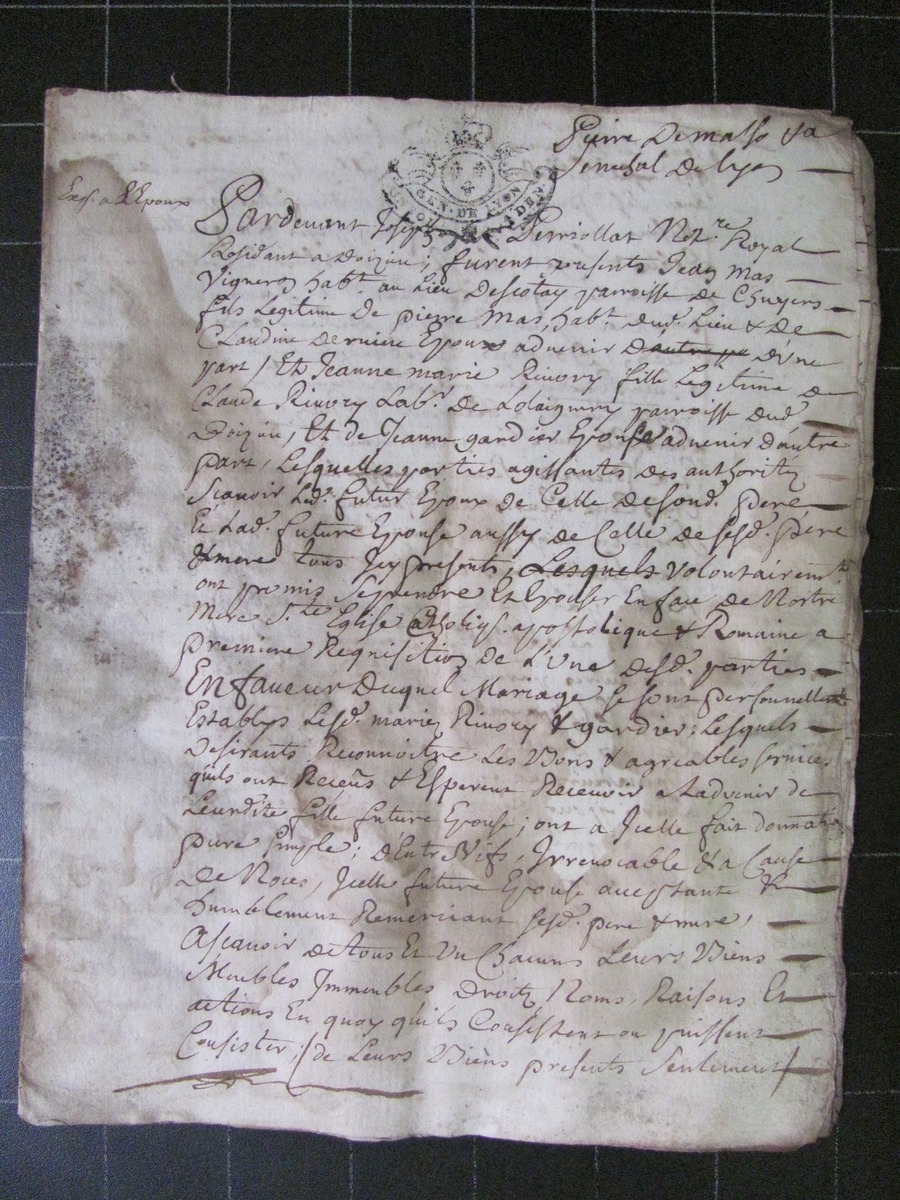 Pierre Demalso &a
Senechal De Lyon
GEN. DE LYON
Exp. a L'Epoux
Pardevant Joseph Perriollat Not.re Royal
Residant a Doizieu; furent presents Jean Mas
Vigneron hab.t au Lieu Descotay parroisse de Chuyers
fils Legitime De pierre Mas, hab.t dud. Lieu & De
Claudine Derniere Epoux advenir D'une
part / Et Jeanne marie Rivory fille Legitime de
Claude Rivory Lab.r De parroisse dud.
Doizieu, Et de Jeanne gardier Epouse advenir d'autre
part, Lesquelles parties agissantes des authoritez
Scavoir Led. futur Epoux de Celle de sond. pere
Et Lad. future Epouse aussy de Celle de sesd. pere
& mere tous Icy presents, Lesquels volontairem.t
ont promis Se prendre Et Epouser En face de Nostre
Mere S.te Eglise Catholiq. apostolique & Romaine a
premiere Requisition de L'une desd. parties
En faveur Duquel Mariage se sont personnellem.t
Establys Lesd. mariez Rivory & gardier; Lesquels
Desirants Reconnoitre Les Bons & agreables services
quils ont Receus & Esperent Recevoir a Ladvenir de
Leurdite fille future Epouse; ont a Icelle fait donnation
pure simple; D'Entre Vifs, Irrevocable & a Cause
De Noces, Icelle future Epouse acceptante &
humblement Remerciant sesd. pere & mere,
Ascavoir de tous Et Un Chacuns Leurs Biens
Meubles Immeubles Droitz Noms, Raisons Et
actions En quoy quils Consistent ou puissent
Consister; (de Leurs Biens presents Seulement)